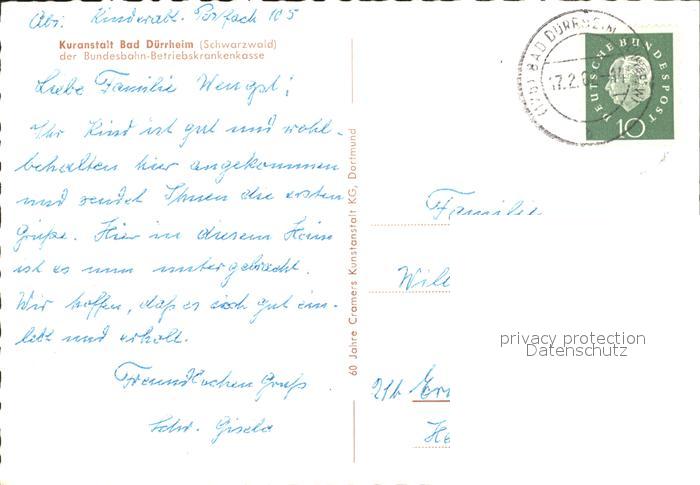 Abs. Kinderabt. Postfach 105
Kuranstalt Bad Dürrheim (Schwarzwald)
der Bundesbahn-Betriebskrankenkasse
Liebe Familie Wengst!
Ihr Kind ist gut und wohl-
behalten hier angekommen
und sendet Ihnen die ersten
Grüße. Hier in diesem Hause
ist es nun untergebracht.
Wir hoffen, daß es sich gut ein-
lebt und erholt.
Freundlichen Gruß
Schw. Gisela
60 Jahre Cramers Kunstanstalt KG, Dortmund
BAD DÜRRHEIM
17.2.6
DEUTSCHE BUNDESPOST
10
Familie
Wil
21b
He
privacy protection
Datenschutz